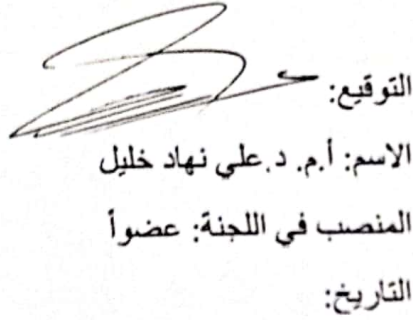 التوقيع:
الاسم: أ.م. د.علي نهاد خليل
المنصب في اللجنة: عضواً
التاريخ: